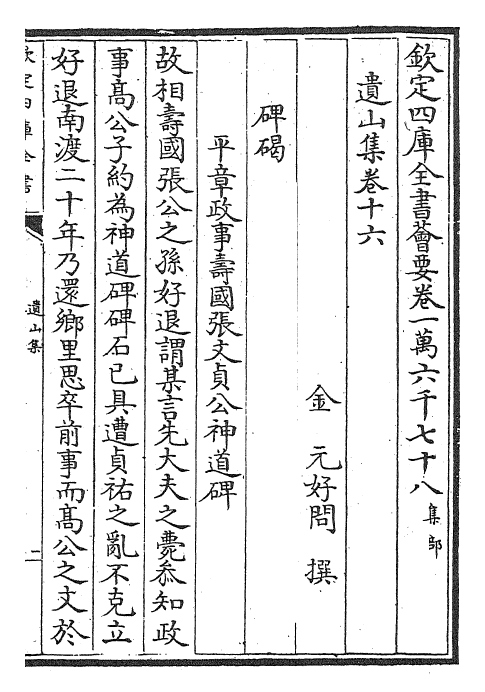 欽定四庫全書薈要卷一萬六千七十八集部
遺山集卷十六
金 元好問 撰
碑碣
平章政事壽國張文貞公神道碑
故相壽國張公之孫好退謂某言先大夫之薨叅知政
事髙公子約為神道碑碑石已具遭貞祐之亂不克立
好退南渡二十年乃還鄉里思卒前事而髙公之文於
欽定四庫全書
遺山集